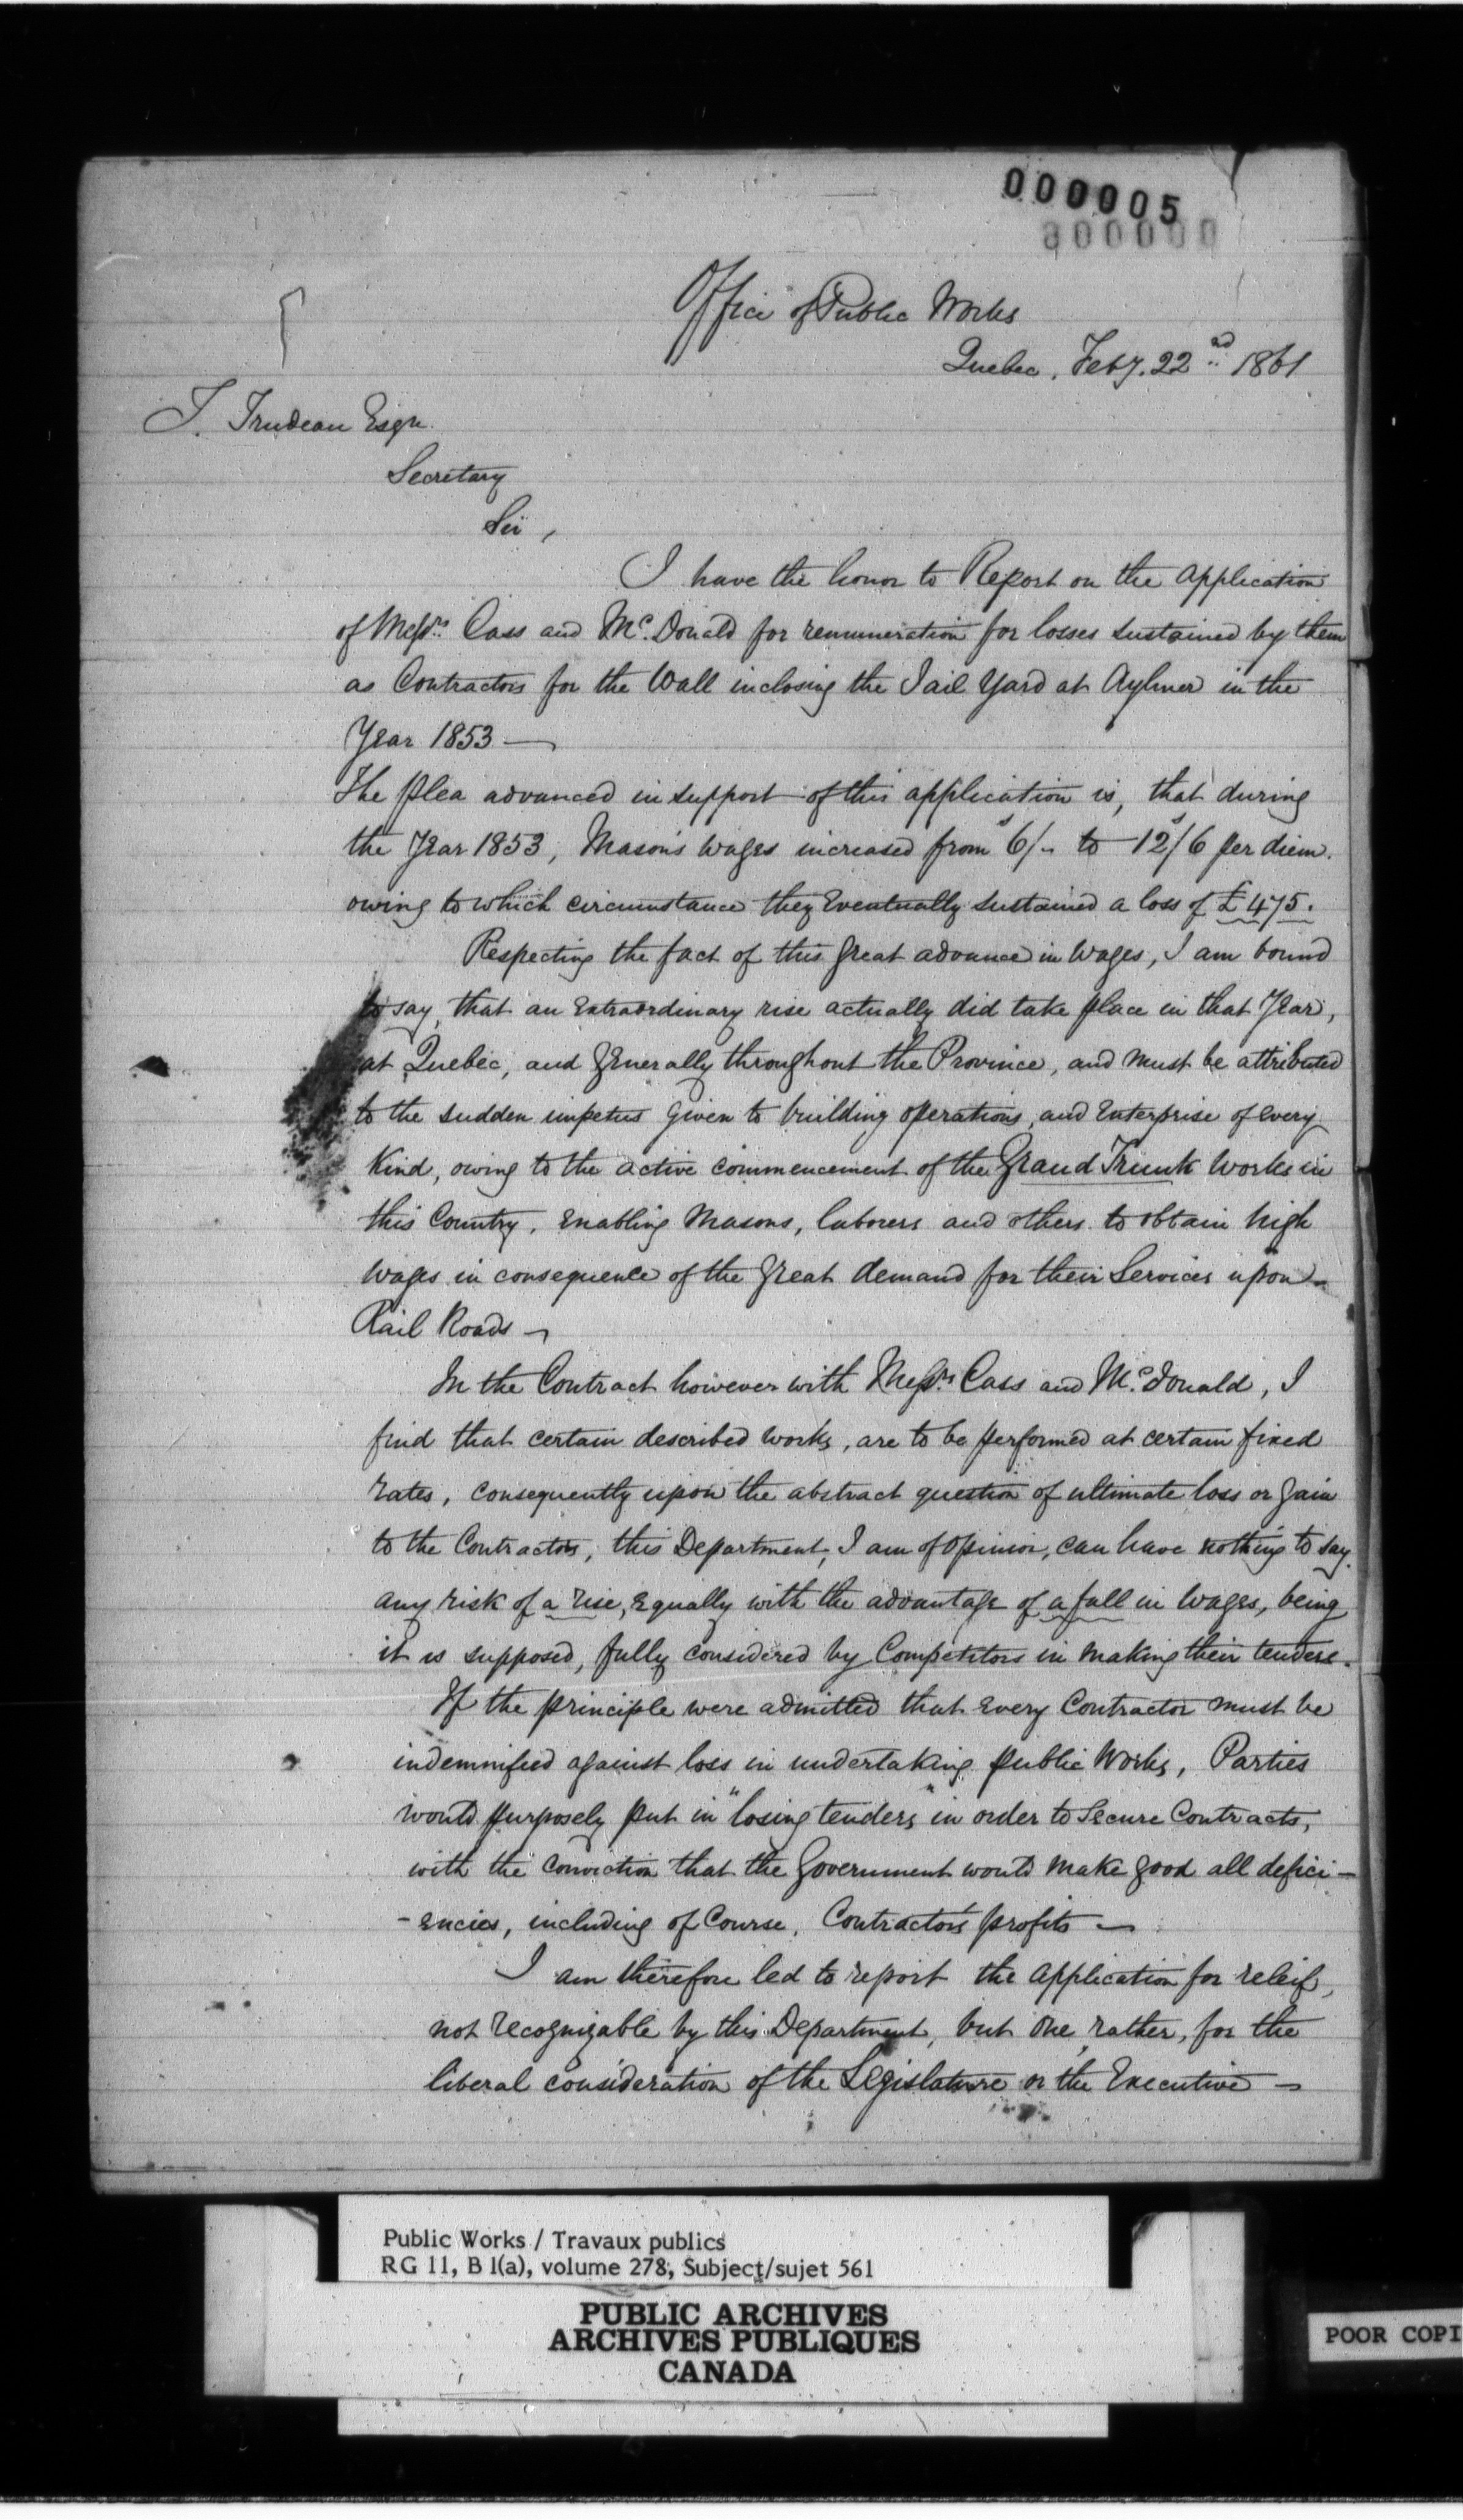 000005
000000
Office of Public Works
Quebec, Feby. 22nd 1861
T. Trudeau Esqr.
Secretary
Sir,
I have the honor to Report on the application
of Messrs. Cass and Mc.Donald for remuneration for losses sustained by them
as Contractors for the Wall inclosing the Jail Yard at Aylmer in the
Year 1853 —
The plea advanced in support of this application is, that during
the Year 1853, Mason's wages increased from 6s/- to 12s/6 per diem.
owing to which circumstance they Eventually sustained a loss of £475.
Respecting the fact of this great advance in Wages, I am bound
to say, that an Extraordinary rise actually did take place in that Year,
at Quebec, and generally throughout the Province, and must be attributed
to the sudden impetus given to building operations, and Enterprise of every
Kind, owing to the active commencement of the Grand Trunk Works in
this Country, Enabling Masons, laborers and others to obtain high
Wages in consequence of the great demand for their Services upon
Rail Roads —
In the Contract however with Messrs. Cass and Mc.Donald, I
find that certain described works, are to be performed at certain fixed
rates, consequently upon the abstract question of ultimate loss or gain
to the Contractors, this Department, I am of opinion, can have nothing to say.
any risk of a rise, Equally with the advantage of a fall in Wages, being
it is supposed, fully considered by Competitors in making their tenders.
If the principle were admitted that Every Contractor must be
indemnified against loss in undertaking public Works, Parties
would purposely put in "losing tenders" in order to Secure Contracts,
with the conviction that the Government would make good all defici-
-encies, including of Course, Contractor's profits —
I am therefore led to report the application for releif,
not recognizable by this Department, but one, rather, for the
liberal consideration of the Legislature or the Executive —
Public Works / Travaux publics
RG 11, B 1(a), volume 278, Subject/sujet 561
PUBLIC ARCHIVES
ARCHIVES PUBLIQUES
CANADA
POOR COPI